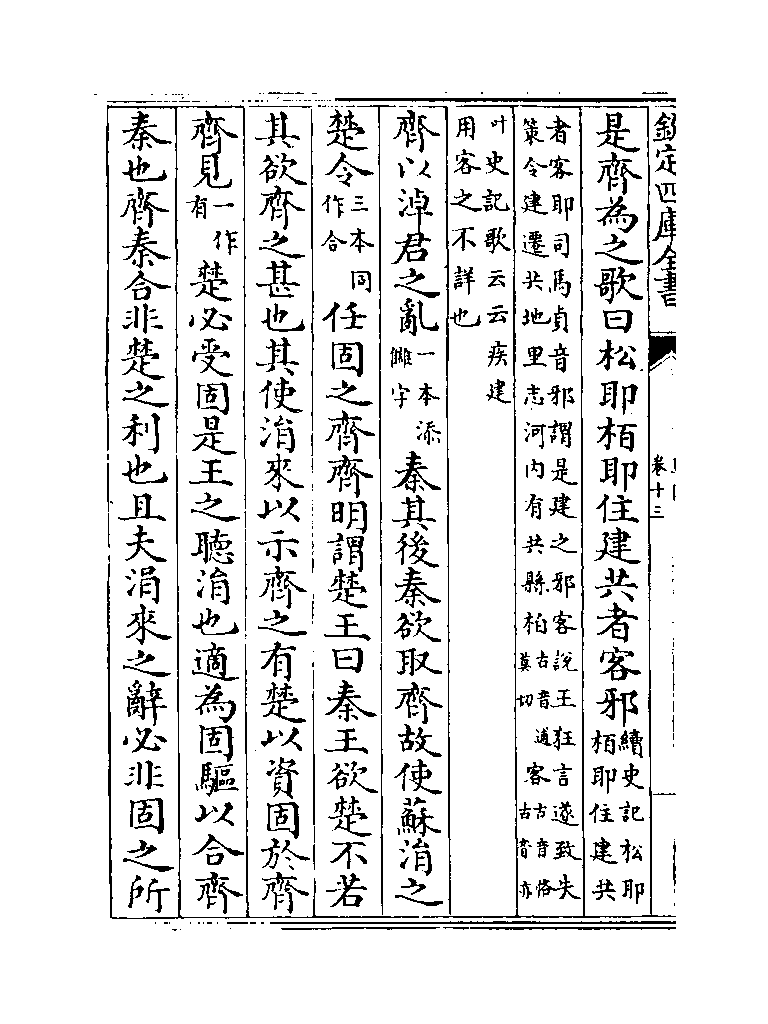 欽定四庫全書
卷十三
是齊為之歌曰松耶栢耶住建共者客邪續史記松耶栢耶住建共
者客耶司馬貞音邪謂是建之邪客說王狂言遂致失
策令建遷共地里志河内有共縣柏古音逋莫切客古音恪古音亦
叶史記歌云云疾建
用客之不詳也
齊以淖君之亂一本添讎字秦其後秦欲取齊故使蘇涓之
楚令三本同作合任固之齊齊明謂楚王曰秦王欲楚不若
其欲齊之甚也其使涓來以示齊之有楚以資固於齊
齊見一作有楚必受固是王之聽涓也適為固驅以合齊
秦也齊秦合非楚之利也且夫涓來之辭必非固之所